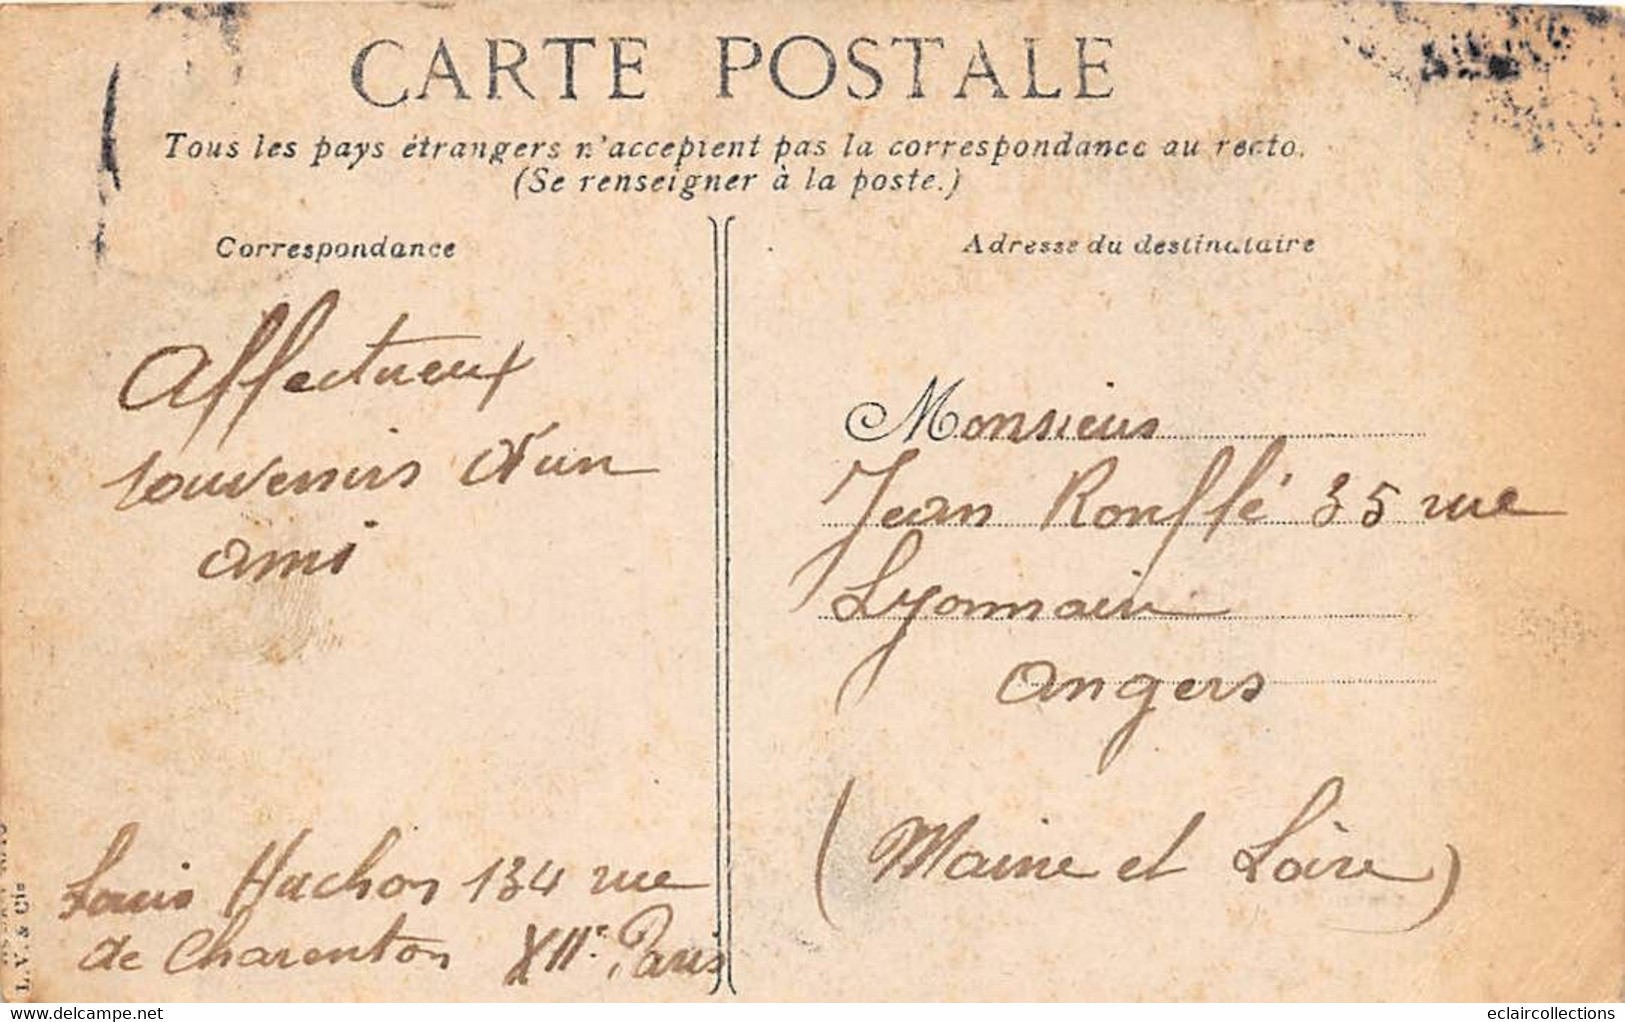 CARTE POSTALE
Tous les pays étrangers n'acceptent pas la correspondance au recto.
(Se renseigner à la poste.)
Correspondance
Affectueux
souvenirs d'un
ami
Louis Huchon 134 rue
de Charenton XIIe Paris
Adresse du destinataire
Monsieur
Jean Rouflé 35 rue
Lyonnaise
Angers
(Maine et Loire)
L. V. & Cie
eclaircollections